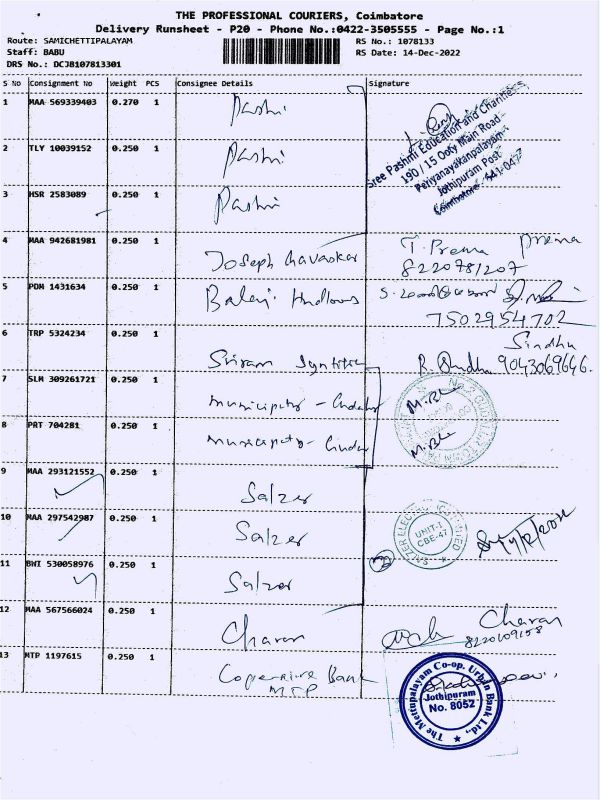 THE PROFESSIONAL COURIERS, Coimbatore
Delivery Runsheet - P20 - Phone No.:0422-3505555 - Page No.:1
Route: SAMICHETTIPALAYAM RS No.: 1078133
Staff: BABU RS Date: 14-Dec-2022
DRS No.: DCJ8107813301
S No Consignment No Weight PCS Consignee Details Signature
1 MAA 569339403 0.270 1 Pashmi
Sree Pashmi Education and Charities
190 / 15 Ooty Main Road
Periyanayakanpalayam
Jothipuram Post
Coimbatore - 641-047
2 TLY 10039152 0.250 1 Pashmi
3 HSR 2583089 0.250 1 Pashmi
4 MAA 942681981 0.250 1 Joseph T. Prema Prema
8220781207
5 PDM 1431634 0.250 1 Balaji
7502954702
6 TRP 5324234 0.250 1 Sriram Sindhu
R. Sindhu 9043069646.
7 SLM 309261721 0.250 1 municipality -
8 PRT 704281 0.250 1 municipality -
9 MAA 293121552 0.250 1 Salzer
10 MAA 297542987 0.250 1 Salzer
SALZER ELECTRONICS LIMITED
UNIT-I
CBE-47
14/12/2022
11 BWI 530058976 0.250 1 Salzer
12 MAA 567566024 0.250 1 Charan Charan
8220109158
13 MTP 1197615 0.250 1 Coperative Bank
MTP
The Mettupalayam Co-op. Urban Bank Ltd.,
Jothipuram
No. 8052